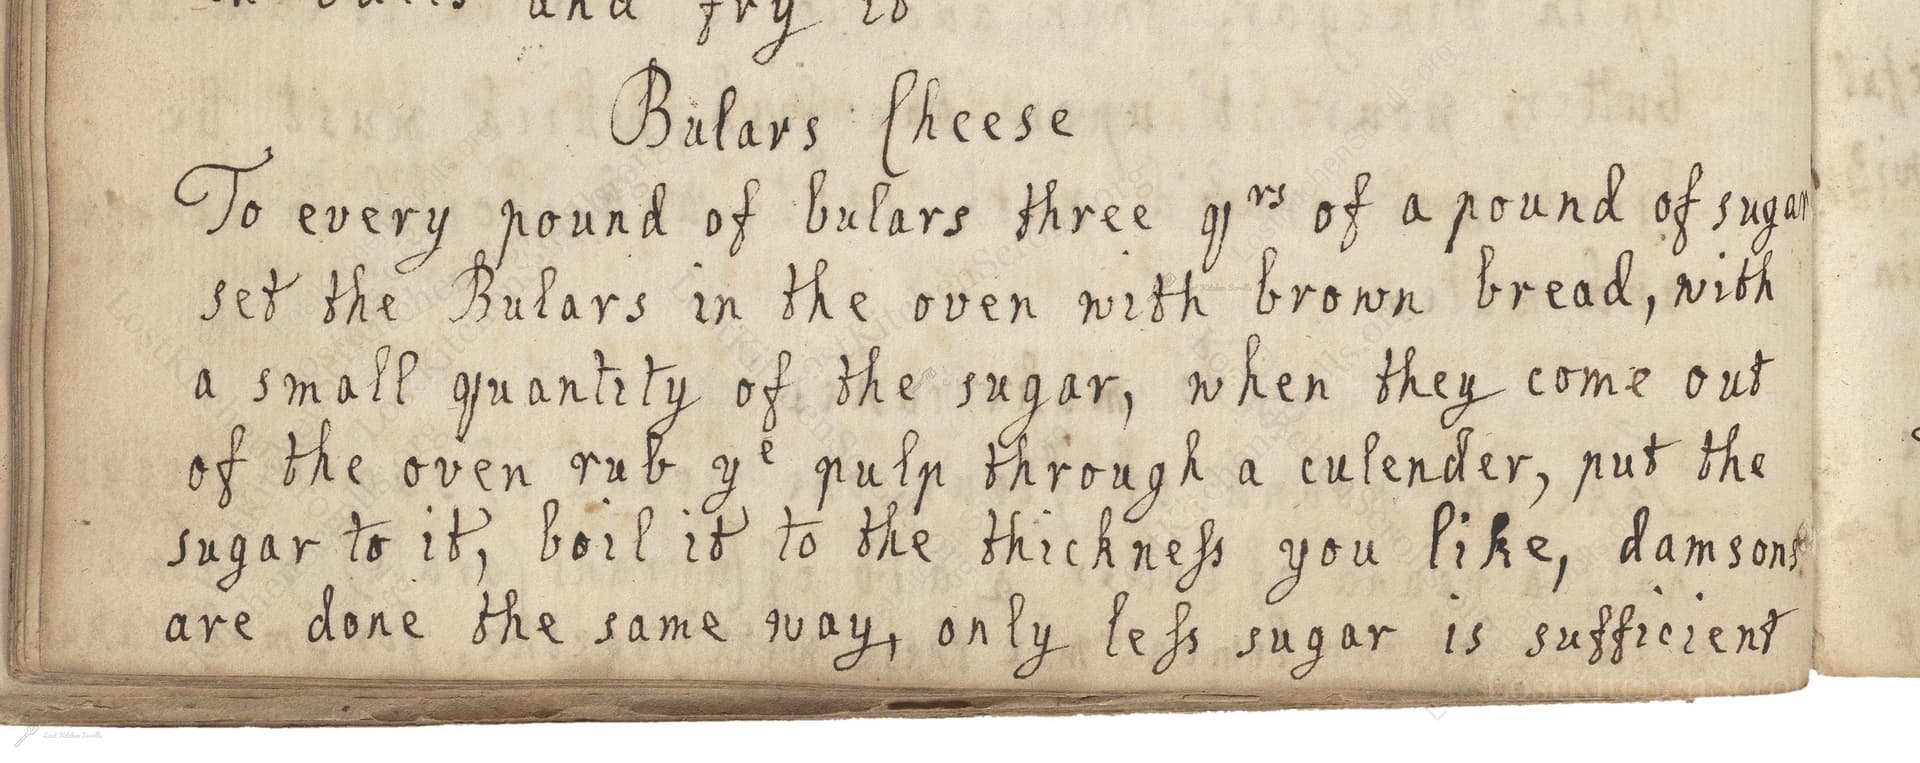 in balls and fry it
Bulars Cheese
To every pound of bulars three qrs of a pound of sugar
set the Bulars in the oven with brown bread, with
a small quantity of the sugar, when they come out
of the oven rub ye pulp through a culender, put the
sugar to it, boil it to the thickneſs you like, damsons
are done the same way, only leſs sugar is sufficient
Lost Kitchen Scrolls